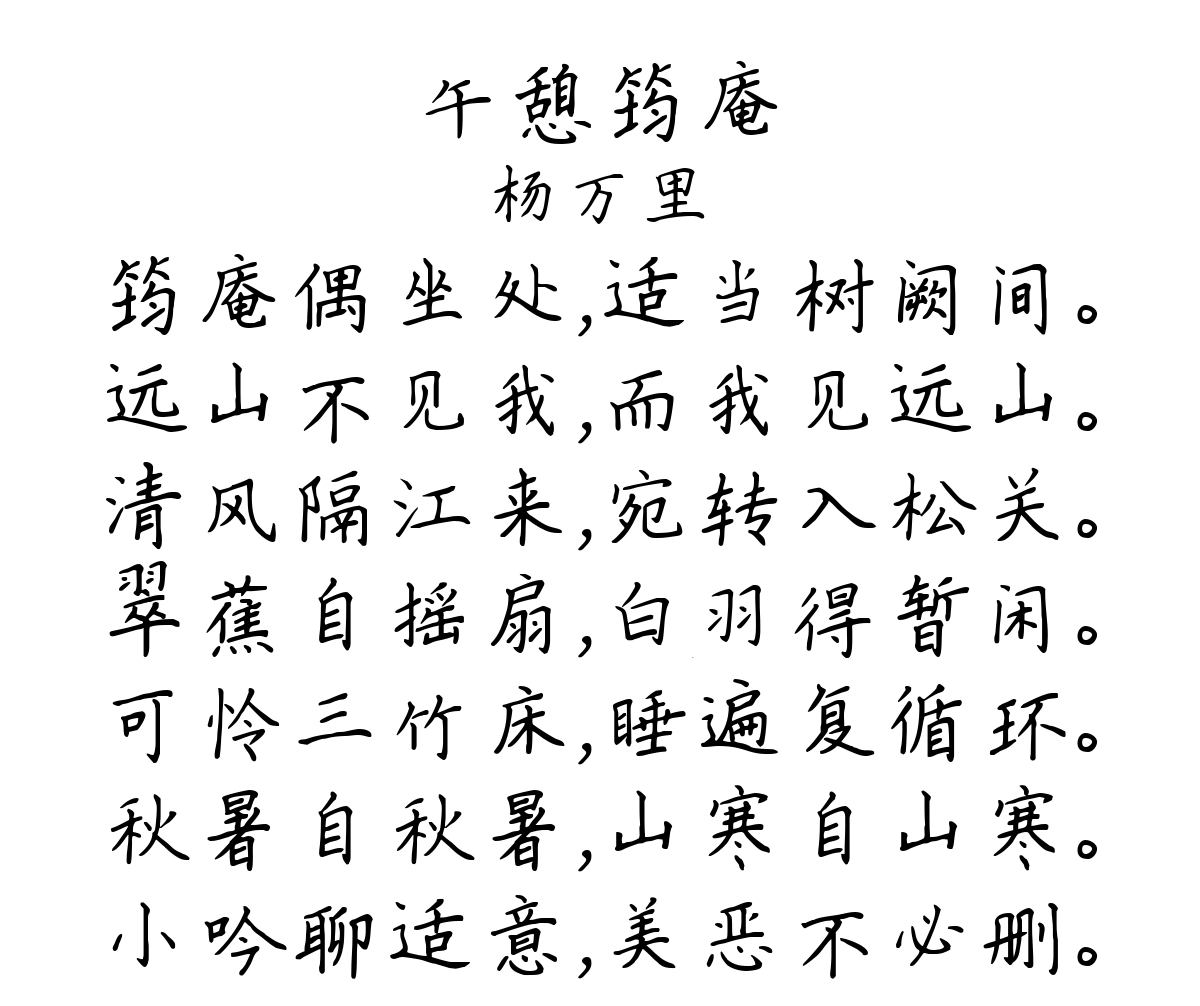 午憩筠庵
杨万里
筠庵偶坐处,适当树阙间。
远山不见我,而我见远山。
清风隔江来,宛转入松关。
翠蕉自摇扇,白羽得暂闲。
可怜三竹床,睡遍复循环。
秋暑自秋暑,山寒自山寒。
小吟聊适意,美恶不必删。